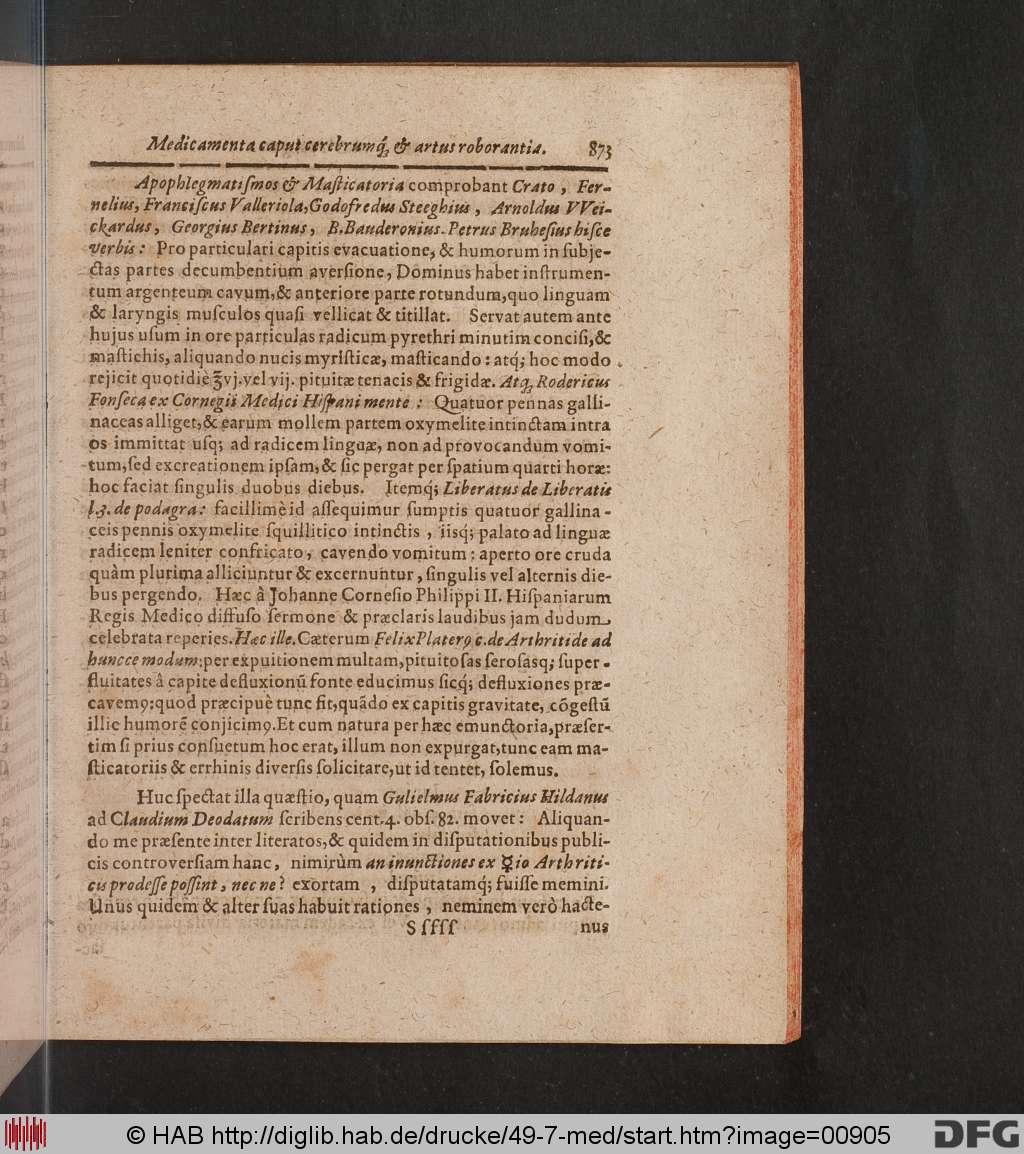 Medicamenta caput cerebrumq́; & artus roborantia. 873
Apophlegmatiſmos & Maſticatoria comprobant Crato, Fer-
nelius, Franciſcus Valleriola, Godofredus Steeghius, Arnoldus VVei-
ckardus, Georgius Bertinus, B. Bauderonius. Petrus Bruheſius hiſce
verbis: Pro particulari capitis evacuatione, & humorum in ſubje-
ctas partes decumbentium averſione, Dominus habet inſtrumen-
tum argenteum cavum, & anteriore parte rotundum, quo linguam
& laryngis muſculos quaſi vellicat & titillat. Servat autem ante
hujus uſum in ore particulas radicum pyrethri minutim conciſi, &
maſtichis, aliquando nucis myriſticæ, maſticando: atq; hoc modo
rejicit quotidiè ℥vj. vel vij. pituitæ tenacis & frigidæ. Atq; Rodericus
Fonſeca ex Cornegii Medici Hiſpani mente: Quatuor pennas galli-
naceas alliget, & earum mollem partem oxymelite intinctam intra
os immittat uſq; ad radicem linguæ, non ad provocandum vomi-
tum, ſed excreationem ipſam, & ſic pergat per ſpatium quarti horæ:
hoc faciat ſingulis duobus diebus. Itemq́; Liberatus de Liberatis
l.3. de podagra: facillimè id aſſequimur ſumptis quatuor gallina-
ceis pennis oxymelite ſquillitico intinctis, iisq; palato ad linguæ
radicem leniter confricato, cavendo vomitum: aperto ore cruda
quàm plurima alliciuntur & excernuntur, ſingulis vel alternis die-
bus pergendo. Hæc â Johanne Corneſio Philippi II. Hiſpaniarum
Regis Medico diffuſo ſermone & præclaris laudibus jam dudum
celebrata reperies. Hæc ille. Cæterum Felix Platerꝰ c. de Arthritide ad
huncce modum: per expuitionem multam, pituitoſas ſeroſasq; ſuper-
fluitates â capite defluxionū fonte educimus ſicq́; defluxiones præ-
cavemꝰ: quod præcipuè tunc fit, quãdo ex capitis gravitate, cõgeſtũ
illic humorẽ conjicimꝰ. Et cum natura per hæc emunctoria, præſer-
tim ſi prius conſuetum hoc erat, illum non expurgat, tunc eam ma-
ſticatoriis & errhinis diverſis ſolicitare, ut id tentet, ſolemus.
Huc ſpectat illa quæſtio, quam Gulielmus Fabricius Hildanus
ad Claudium Deodatum ſcribens cent. 4. obſ. 82. movet: Aliquan-
do me præſente inter literatos, & quidem in diſputationibus publi-
cis controverſiam hanc, nimirùm an inunctiones ex ☿io Arthriti-
cis prodeſſe poſſint, nec ne? exortam, diſputatamq́; fuiſſe memini.
Unus quidem & alter ſuas habuit rationes, neminem verò hacte-
S ſſſſ nus
© HAB http://diglib.hab.de/drucke/49-7-med/start.htm?image=00905 DFG